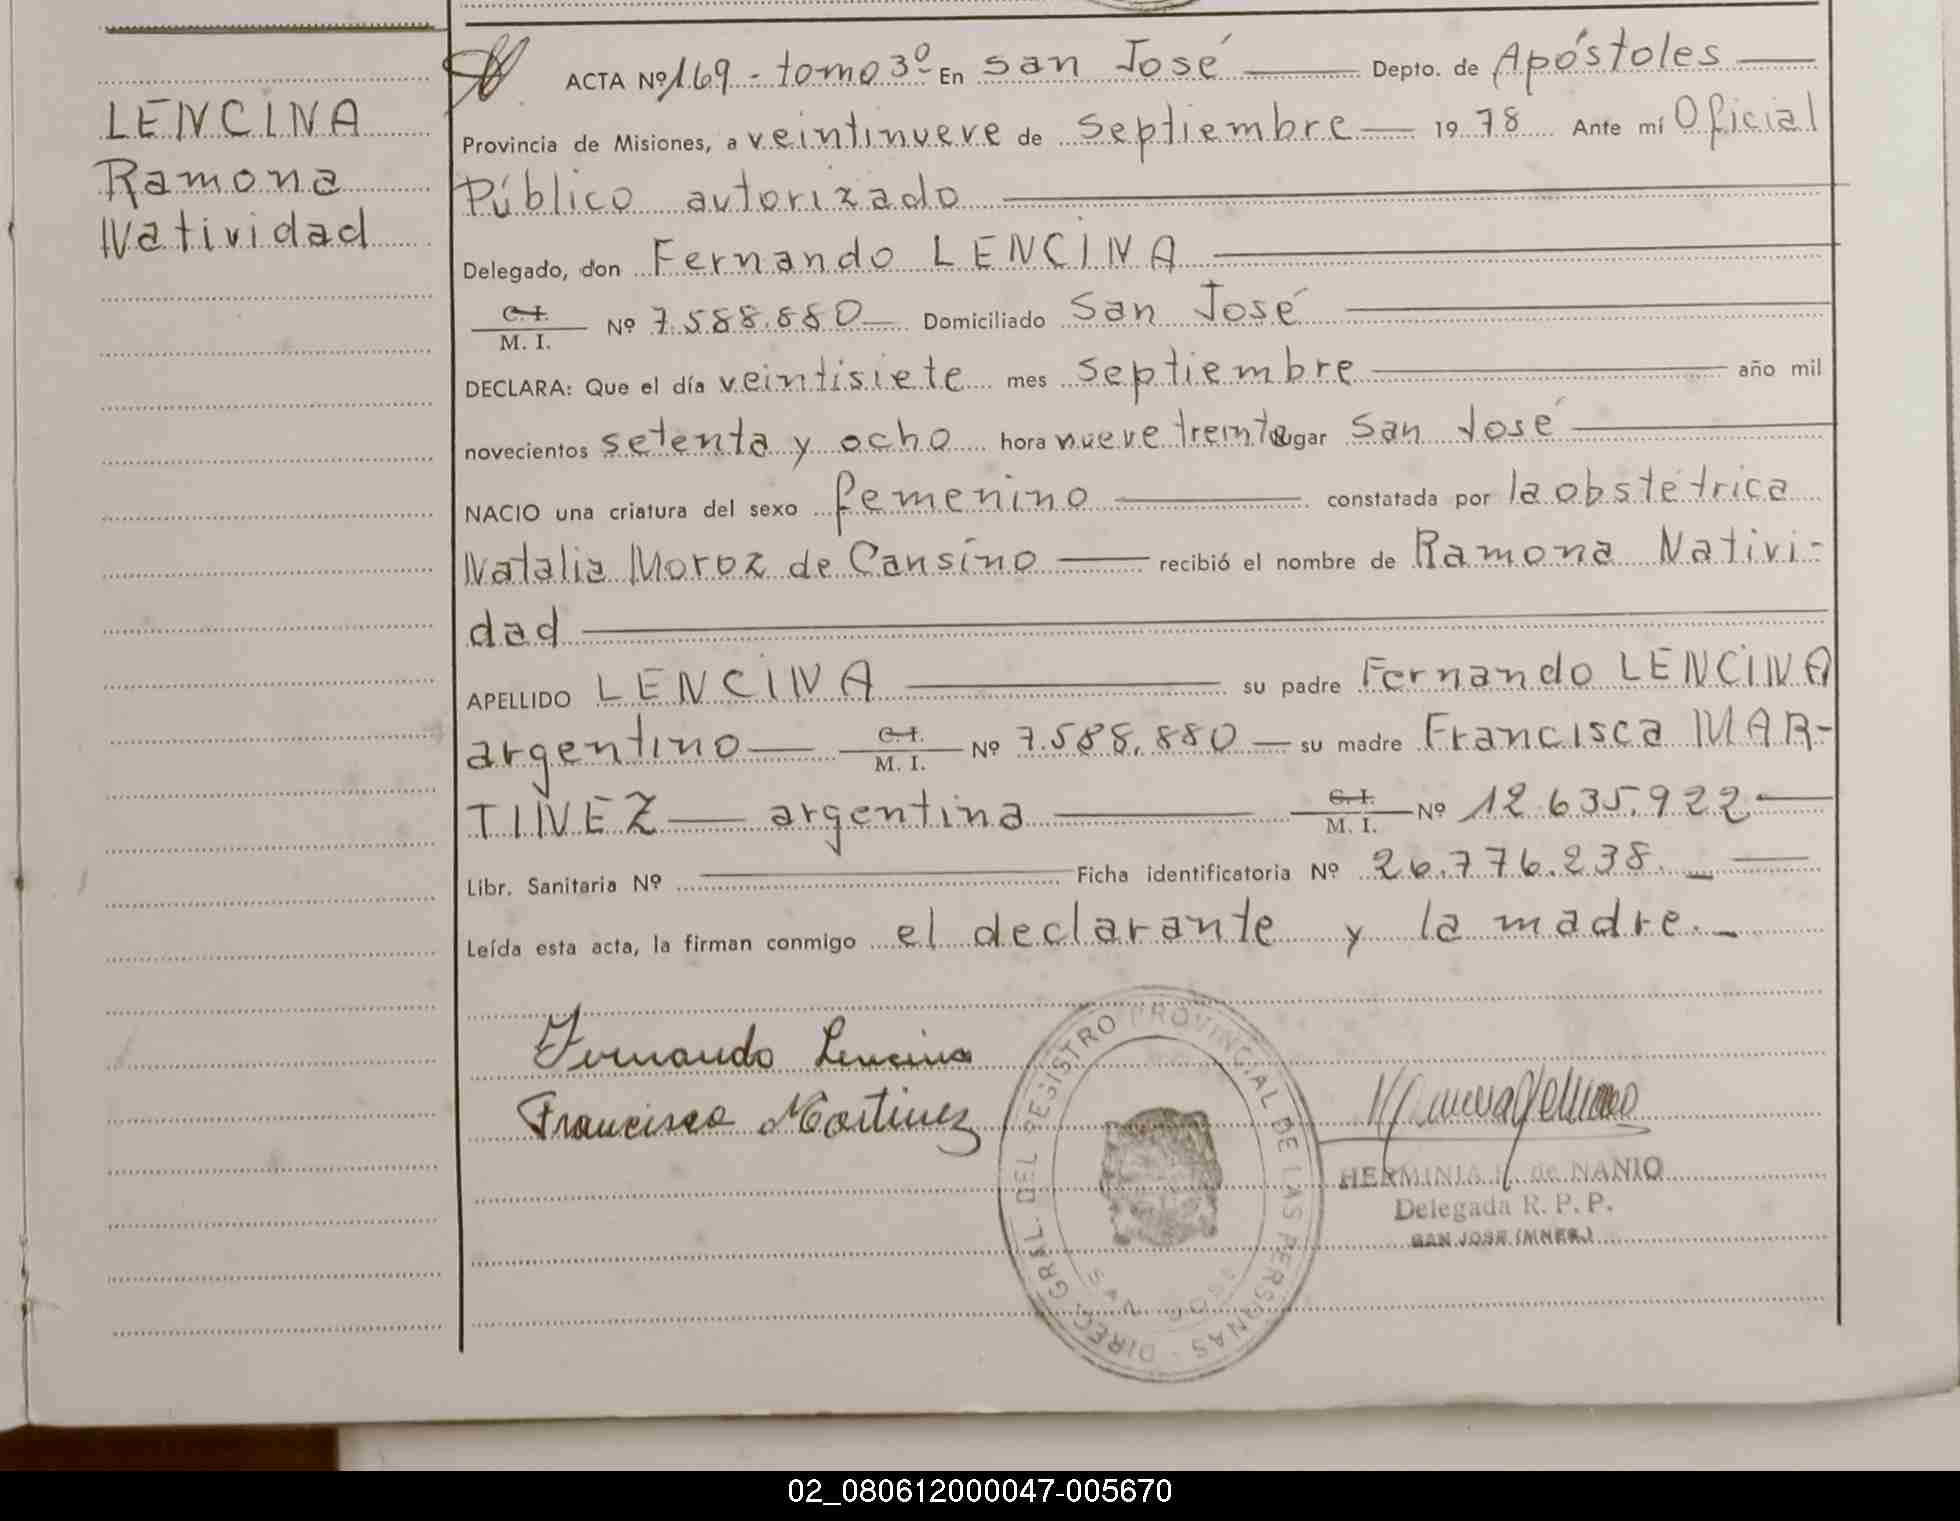 LENCINA
Ramona
Natividad
ACTA Nº 169 - tomo 3º - En San José Depto. de Apóstoles
Provincia de Misiones, a veintinueve de Septiembre 1978 Ante mí Oficial
Público autorizado
Delegado, don Fernando LENCINA
C. I.
M. I. Nº 7.588.880 Domiciliado San José
DECLARA: Que el día veintisiete mes Septiembre año mil
novecientos setenta y ocho hora nueve treinta lugar San José
NACIO una criatura del sexo femenino constatada por la obstétrica
Natalia Moroz de Cansino recibió el nombre de Ramona Nativi-
dad
APELLIDO LENCINA su padre Fernando LENCINA
argentino C. I.
M. I. Nº 7.588.880 su madre Francisca MAR-
TINEZ argentina C. I.
M. I. Nº 12.635.922
Libr. Sanitaria Nº Ficha identificatoria Nº 26.776.238.
Leída esta acta, la firman conmigo el declarante y la madre.
Fernando Lencina
Francisca Martinez
DIREC. GRAL. DEL REGISTRO PROVINCIAL DE LAS PERSONAS
SAN JOSE
HERMINIA de NANIO
Delegada R. P. P.
SAN JOSE (MNES.)
02_080612000047-005670